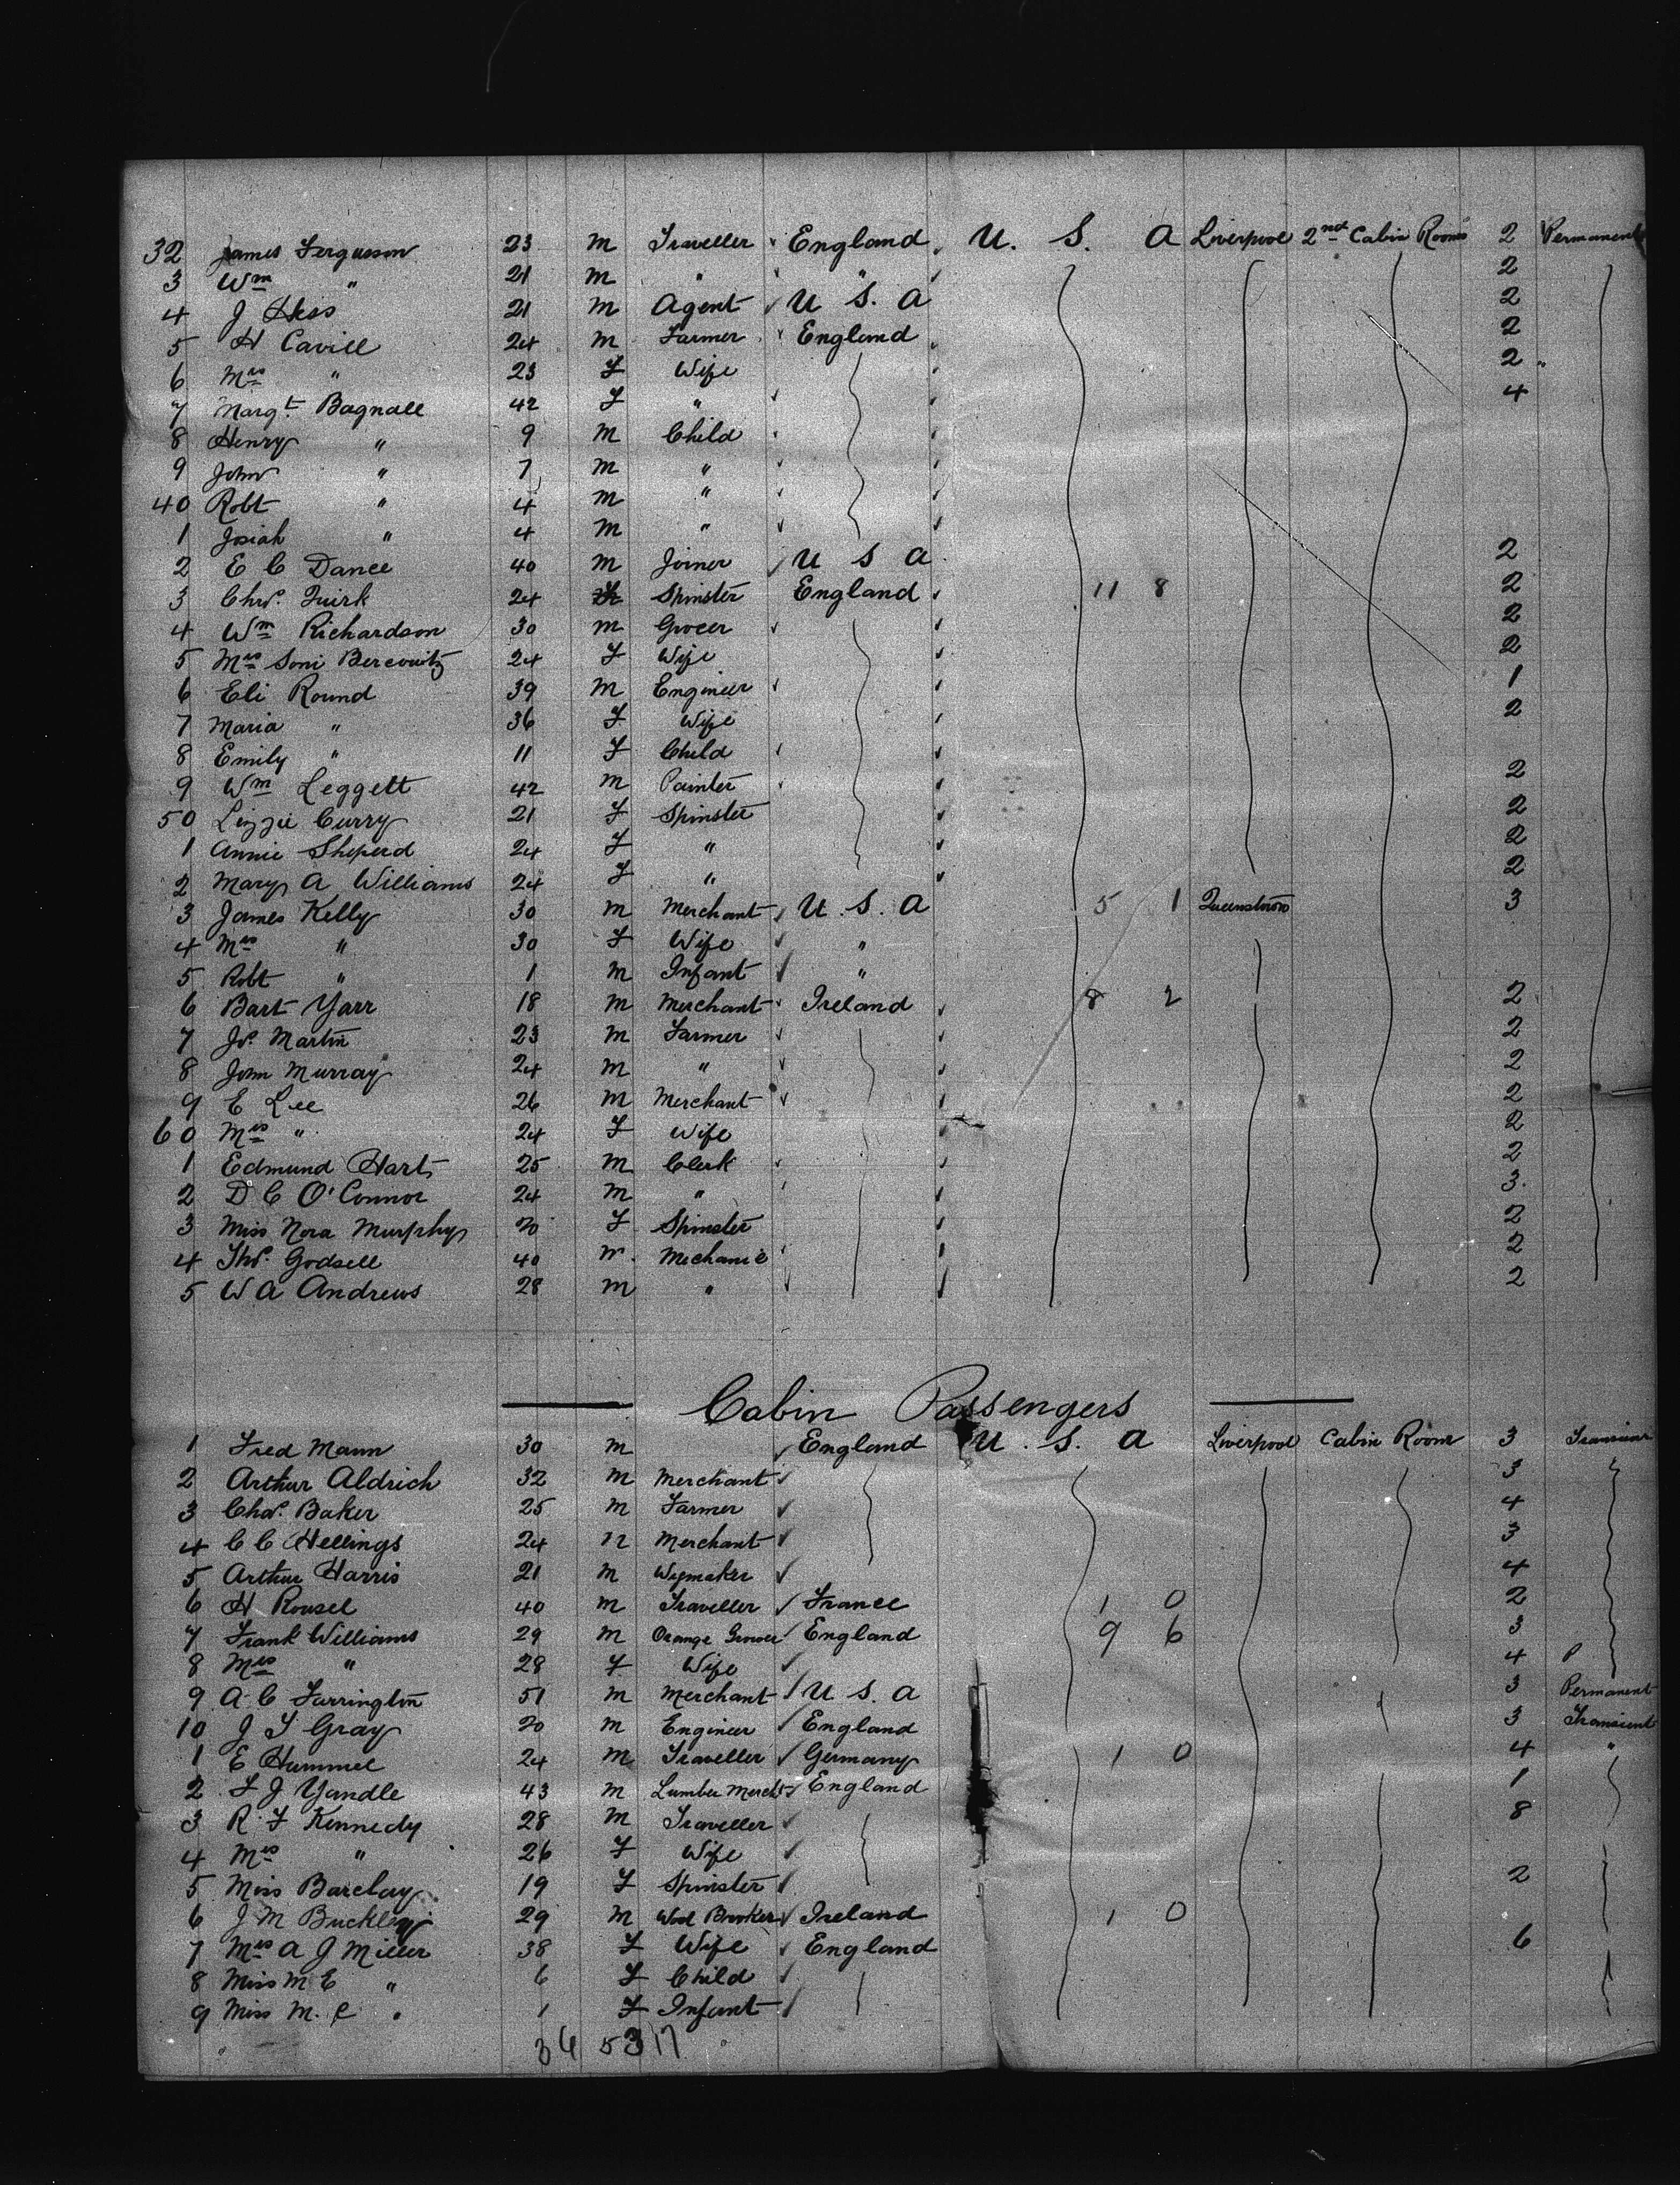 32 James Fergusson 23 m Traveller England U. S. A Liverpool 2nd Cabin Rooms 2 Permanent
3 Wm " 21 m " " 2
4 J Hess 21 m Agent U S. A 2
5 H Cavill 24 m Farmer England 2
6 Mrs " 23 F Wife 2
7 Margt. Bagnall 42 F " 4
8 Henry " 9 m Child
9 John " 7 m "
40 Robt " 4 m "
1 Josiah " 4 m "
2 E C Dance 40 m Joiner U S A 2
3 Chs. Quirk 24 Spinster England 11 8 2
4 Wm Richardson 30 m Grocer 2
5 Mrs Soni Bercovitz 24 F Wife 2
6 Eli Round 39 m Engineer 1
7 Maria " 36 F Wife 2
8 Emily " 11 F Child
9 Wm Leggett 42 m Painter 2
50 Lizzie Curry 21 F Spinster 2
1 Annie Sheperd 24 F " 2
2 Mary A Williams 24 F " 2
3 James Kelly 30 m Merchant U. S. A 5 1 Queenstown 3
4 Mrs " 30 F Wife "
5 Robt " 1 m Infant "
6 Bart Yarr 18 m Merchant Ireland 8 2 2
7 Js. Martin 23 m Farmer 2
8 John Murray 24 m " 2
9 E Lee 26 m Merchant 2
60 Mrs " 24 F Wife 2
1 Edmund Hart 25 m Clerk 2
2 D C O'Connor 24 m " 3.
3 Miss Nora Murphy 20 F Spinster 2
4 Ths. Godsell 40 m Mechanic 2
5 W A Andrews 28 m " 2
Cabin Passengers
1 Fred Mann 30 m England U. S. A Liverpool Cabin Room 3 Transient
2 Arthur Aldrich 32 m Merchant 3
3 Chas. Baker 25 m Farmer 4
4 C C Hellings 24 m Merchant 3
5 Arthur Harris 21 m Wigmaker 4
6 H Rousel 40 m Traveller France 1 0 2
7 Frank Williams 29 m Orange Grower England 9 6 3
8 Mrs " 28 F Wife 4 P
9 A. C Farrington 51 m Merchant U S. A 3 Permanent
10 J T Gray 20 m Engineer England 3 Transient
1 E Hummel 24 m Traveller Germany 1 0 4 "
2 F J Yandle 43 m Lumber Mercht England 1
3 R. F Kennedy 28 m Traveller 8
4 Mrs " 26 F Wife
5 Miss Barclay 19 F Spinster 2
6 J M Buckley 29 m Wool Brooker Ireland 1 0
7 Mrs A J Miller 38 F Wife England 6
8 Miss M E " 6 F Child
9 Miss M. C " 1 F Infant
36 53 17